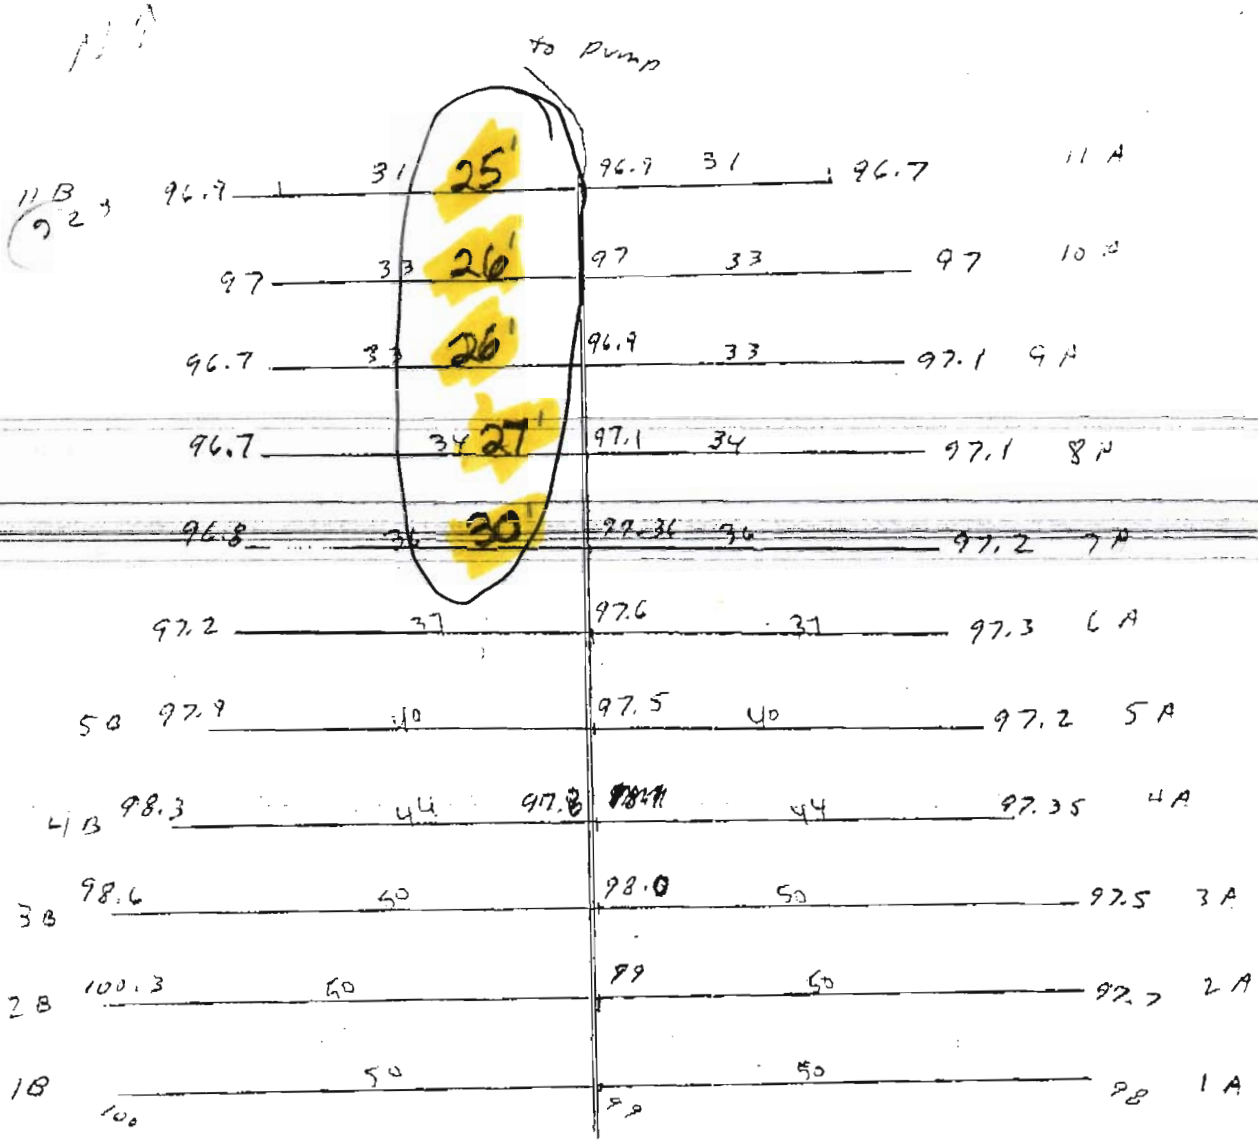 N
to pump
31 25' 96.9 31 96.7 11 A
11 B 96.9
92
97 33 26' 97 33 97 10 A
96.7 33 26' 96.9 33 97.1 9 A
96.7 34 27' 97.1 34 97.1 8 A
96.8 36 30' 97.36 36 97.2 7 A
97.2 37 97.6 37 97.3 6 A
5 B 97.9 40 97.5 40 97.2 5 A
4 B 98.3 44 97.8 44 97.35 4 A
3 B 98.6 50 98.0 50 97.5 3 A
2 B 100.3 50 99 50 97.7 2 A
1 B 50 50 98 1 A
100 99